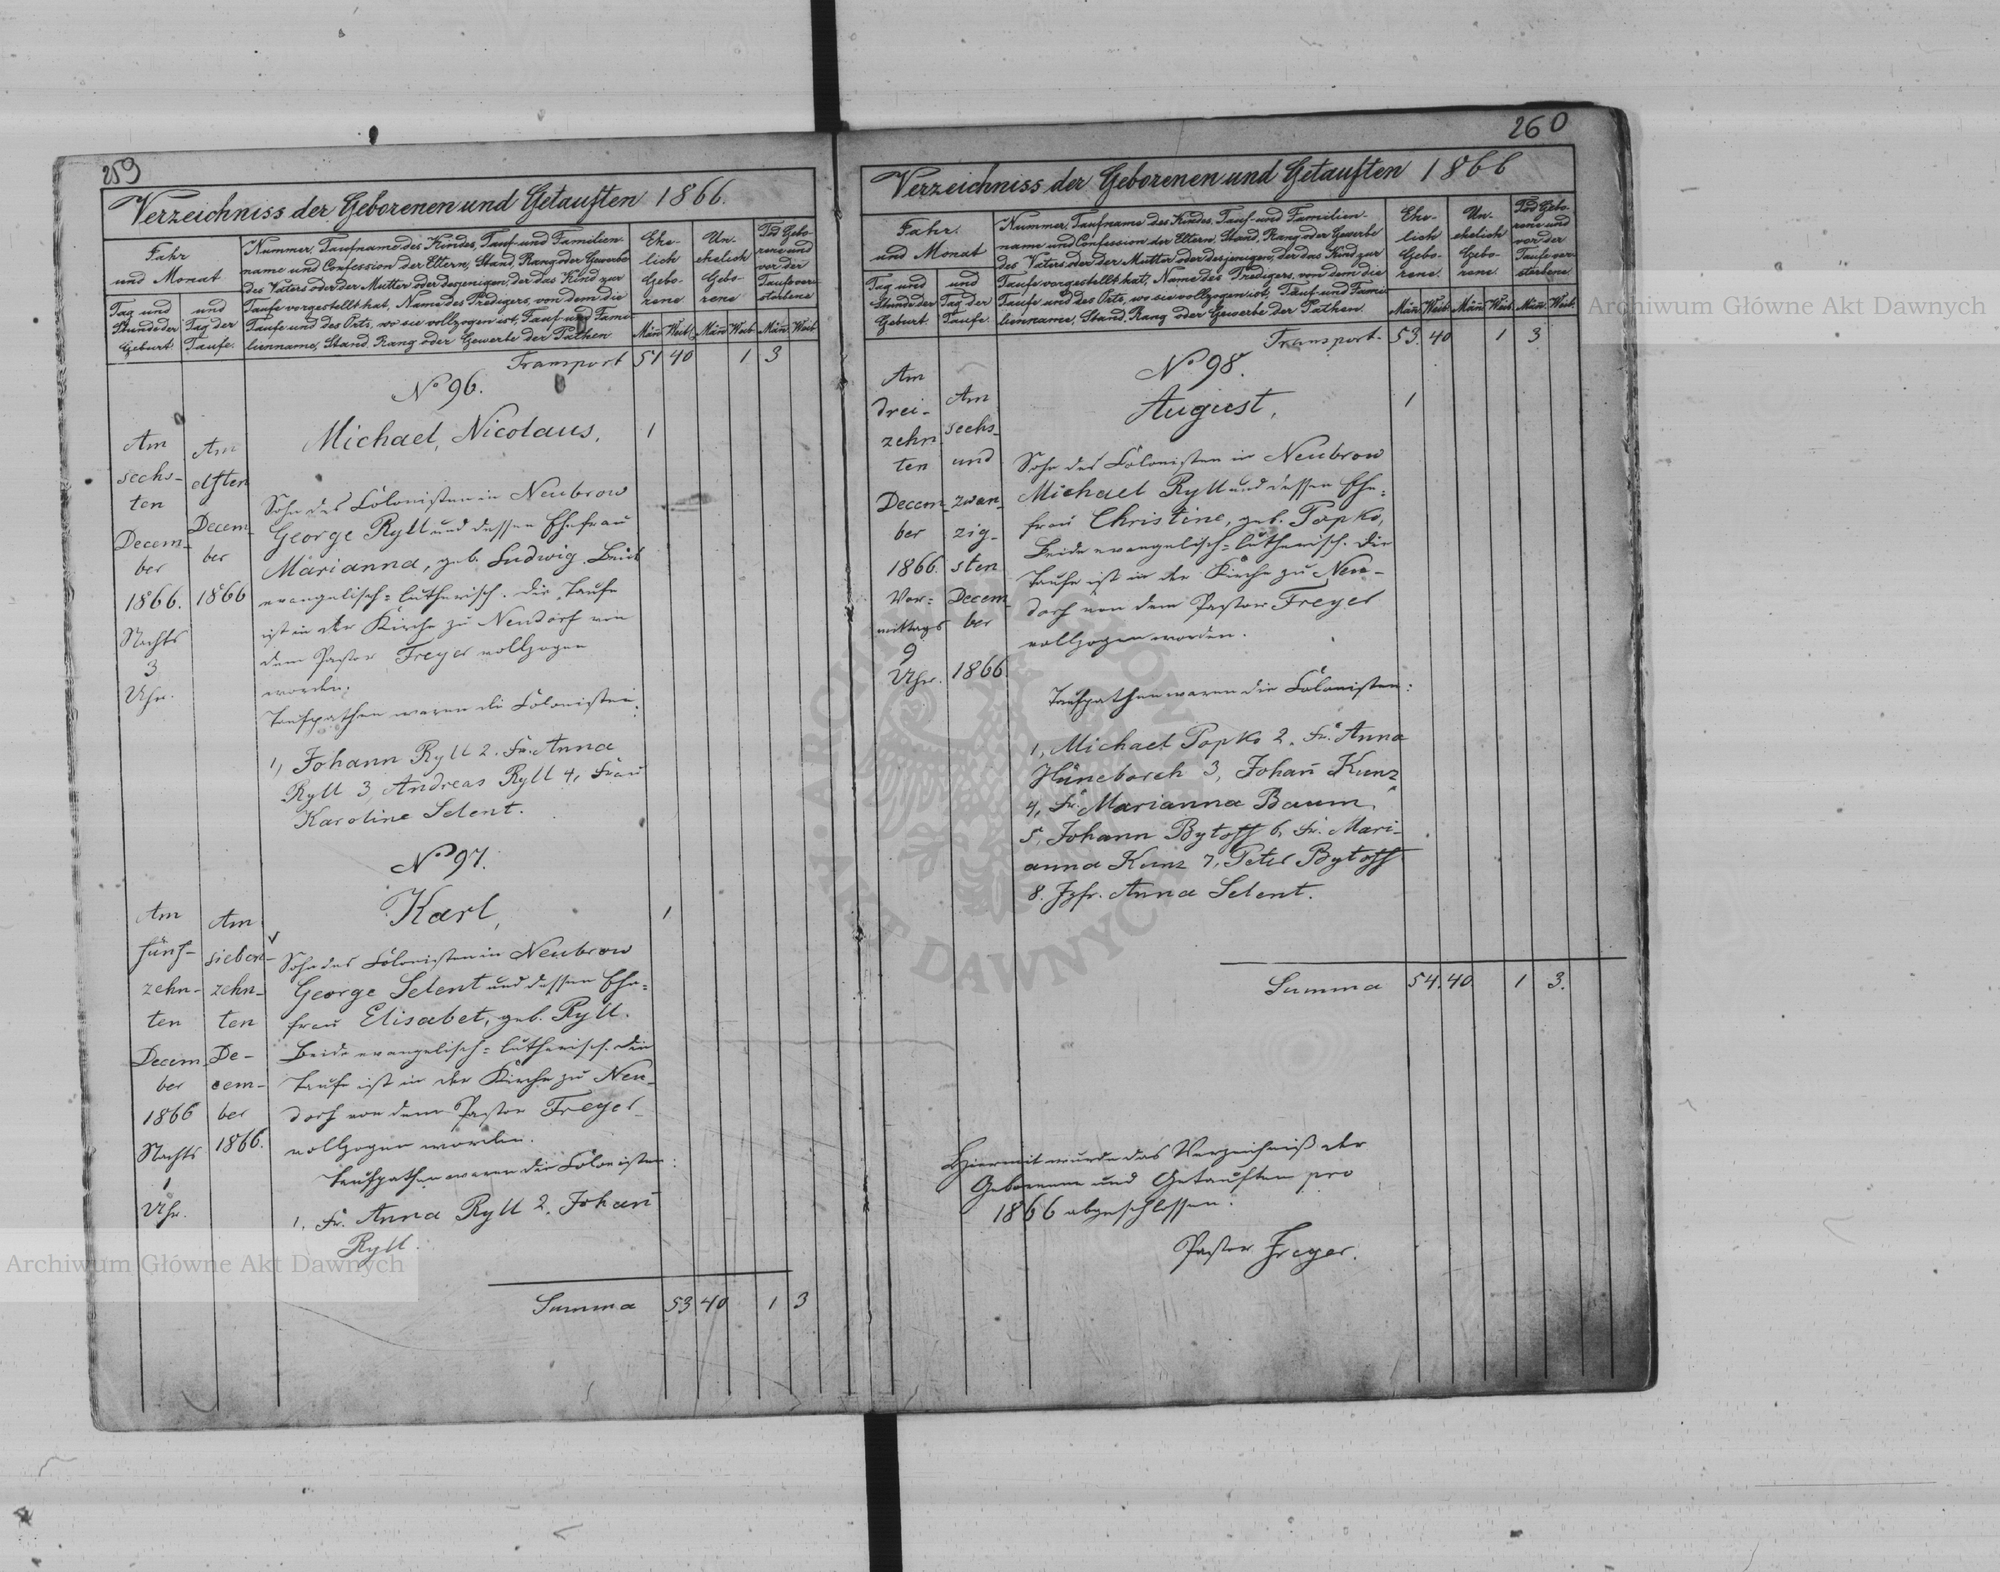 259
Verzeichniss der Geborenen und Getauften 1866.
Jahr
und Monat
Tag und
Stunde der
Geburt.
und
Tag der
Taufe.
Nummer, Taufname des Kindes, Tauf- und Familien-
name und Confession der Eltern, Stand, Rang oder Gewerbe
des Vaters oder der Mutter oder desjenigen, der das Kind zur
Taufe vorgestellt hat, Name des Predigers, von dem die
Taufe und des Orts, wo sie vollzogen ist, Tauf- und Fami-
lienname, Stand, Rang oder Gewerbe der Pathen
Ehe-
lich
Gebo-
rene
Män̄. Weib.
Un-
ehelich
Gebo-
rene
Män̄. Weib.
Tod Gebo-
rene und
vor der
Taufe ver-
storbene
Män̄. Weib.
Transport 51 40 1 3
No 96.
Michael, Nicolaus, 1
Am
sechs-
ten
Decem-
ber
1866.
Nachts
3
Uhr.
Am
elften
Decem-
ber
1866
Sohn des Colonisten in Neubrow
George Ryll und dessen Ehefrau
Marianna, geb. Ludwig. Beide
evangelisch-lutherisch. Die Taufe
ist in der Kirche zu Neudorf von
dem Pastor Freyer vollzogen
worden.
Taufpathen waren die Colonisten:
1, Johann Ryll 2. Fr. Anna
Ryll 3, Andreas Ryll 4, Frau
Karoline Selent.
No 97.
Karl, 1
Am
fünf-
zehn-
ten
Decem-
ber
1866
Nachts
1
Uhr.
Am
sieben-
zehn-
ten
De-
cem-
ber
1866.
Sohn des Colonisten in Neubrow
George Selent und dessen Ehe-
frau Elisabet, geb. Ryll.
Beide evangelisch-lutherisch. Die
Taufe ist in der Kirche zu Neu-
dorf von dem Pastor Freyer
vollzogen worden.
Taufpathen waren die Colonisten:
1, Fr. Anna Ryll 2. Johan̄
Ryll.
Summa 53 40 1 3
260
Verzeichniss der Geborenen und Getauften 1866
Jahr
und Monat
Tag und
Stunde der
Geburt
und
Tag der
Taufe.
Nummer, Taufname des Kindes, Tauf- und Familien-
name und Confession der Eltern, Stand, Rang oder Gewerbe
des Vaters oder der Mutter oder desjenigen, der das Kind zur
Taufe vorgestellt hat, Name des Predigers, von dem die
Taufe und des Orts, wo sie vollzogen ist, Tauf- und Fami-
lienname, Stand, Rang oder Gewerbe der Pathen
Ehe-
lich
Gebo-
rene.
Män̄. Weib.
Un-
ehelich
Gebo-
rene
Män̄. Weib.
Tod Gebo-
rene und
vor der
Taufe ver-
storbene
Män̄. Weib.
Transport. 53. 40 1 3
No 98.
August, 1
Am
drei-
zehn
ten
Decem-
ber
1866.
Vor-
mittags
9
Uhr.
Am
sechs-
und
zwan-
zig-
sten
Decem-
ber
1866
Sohn des Colonisten in Neubrow
Michael Ryll und dessen Ehe-
frau Christine, geb. Popko,
Beide evangelisch-lutherisch. Die
Taufe ist in der Kirche zu Neu-
dorf von dem Pastor Freyer
vollzogen worden.
Taufpathen waren die Colonisten:
1, Michael Popko 2. Fr. Anna
Hüneborch 3, Johan̄ Kunz
4, Fr. Marianna Baum.
5, Johann Bytoff 6, Fr. Mari-
anna Kunz 7, Peter Bytoff
8. Jgfr. Anna Selent.
Summa 54 40 1 3.
Hiermit wurde das Verzeichniß der
Geborenen und Getauften pro
1866 abgeschlossen.
Pastor Freyer.
Archiwum Główne Akt Dawnych
Archiwum Główne Akt Dawnych